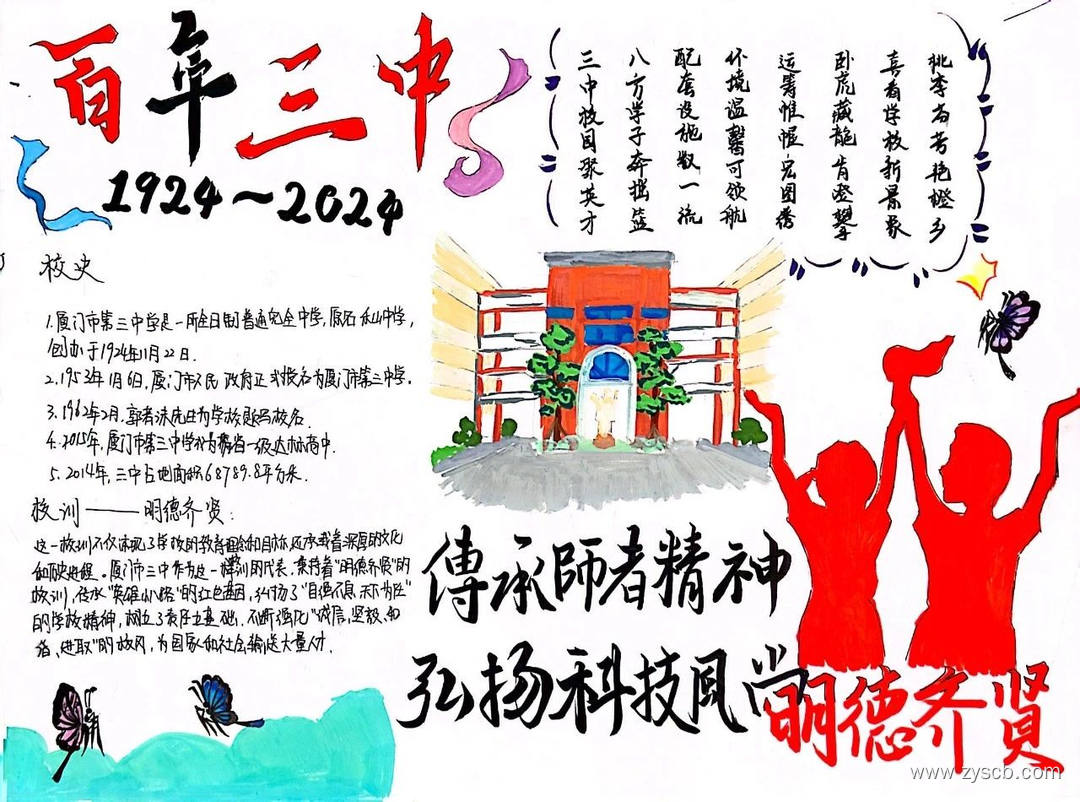 百年三中
1924~2024
三中校园聚英才
八方学子奔摇篮
配套设施数一流
环境温馨可领航
运筹帷幄宏图秀
卧虎藏龍肯登攀
喜看学校新景象
桃李芬芳艳橙乡
校史
1.厦门市第三中学是一所全日制普通完全中学,原名禾山中学,
创办于1924年11月22日.
2.1953年1月6日,厦门市人民政府正式接名为厦门市第三中学.
3.1962年2月,郭沫若先生为学校题写校名.
4.2015年,厦门市第三中学为省一级达标高中.
5.2014年,三中占地面积68789.8平方米.
校训——明德齐贤:
这一校训不仅体现了学校的教育理念和目标,还承载着深厚的文化
和历史进程。厦门市三中作为这一校训的代表,秉持着“明德齐贤”的
校训,传承“英雄小路”的红色基因,弘扬了“自强不息,天下为任”
的学校精神,树立了责任基础,不断强化“诚信,坚毅,
进取”的校风,为国家和社会输送大量人才.
傳承師者精神
弘扬科技风尚
明德齐贤
www.zyscb.com